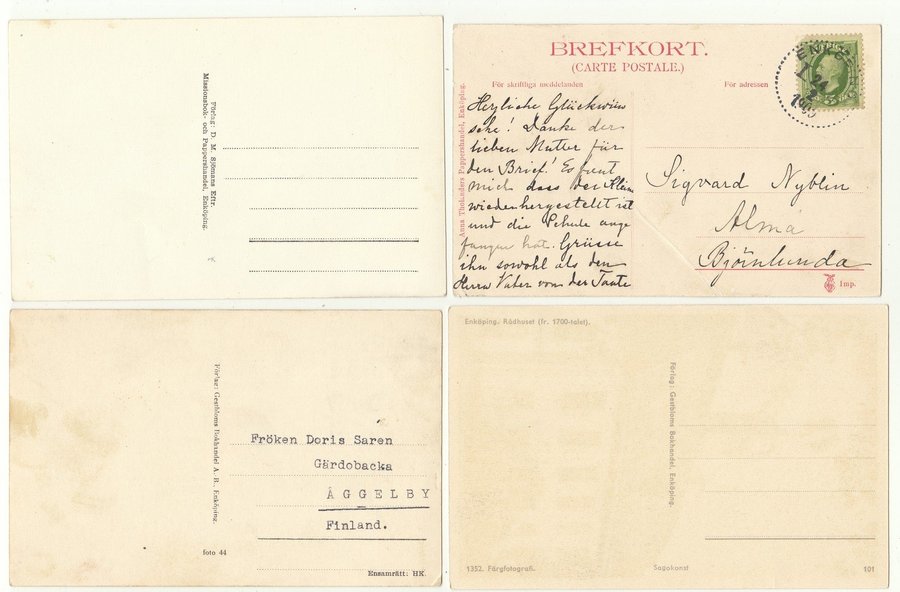 Förlag: D. M. Sjömans Eftr.
Missionsbok- och Pappershandel, Enköping.
BREFKORT.
(CARTE POSTALE.)
För skriftliga meddelanden
För adressen
Anna Tholanders Pappershandel, Enköping.
Herzliche Glückwün
sche! Danke der
lieben Mutter für
den Brief! Es freut
mich dass der Kleine
wiederhergestellt ist
und die Schule ange
fangen hat. Grüsse
ihn sowohl als den
Herrn Vater von der Tante
SVERIGE
24
1905
Sigvard Nyblin
Almа
Björnlunda
Imp.
Förlag: Gestbloms Bokhandel A.-B., Enköping.
Fröken Doris Saren
Gärdobacka
ÅGGELBY
Finland.
foto 44
Ensamrätt: HK.
Enköping. Rådhuset (fr. 1700-talet).
Förlag: Gestbloms Bokhandel, Enköping.
1352. Färgfotografi.
Sagokonst
101